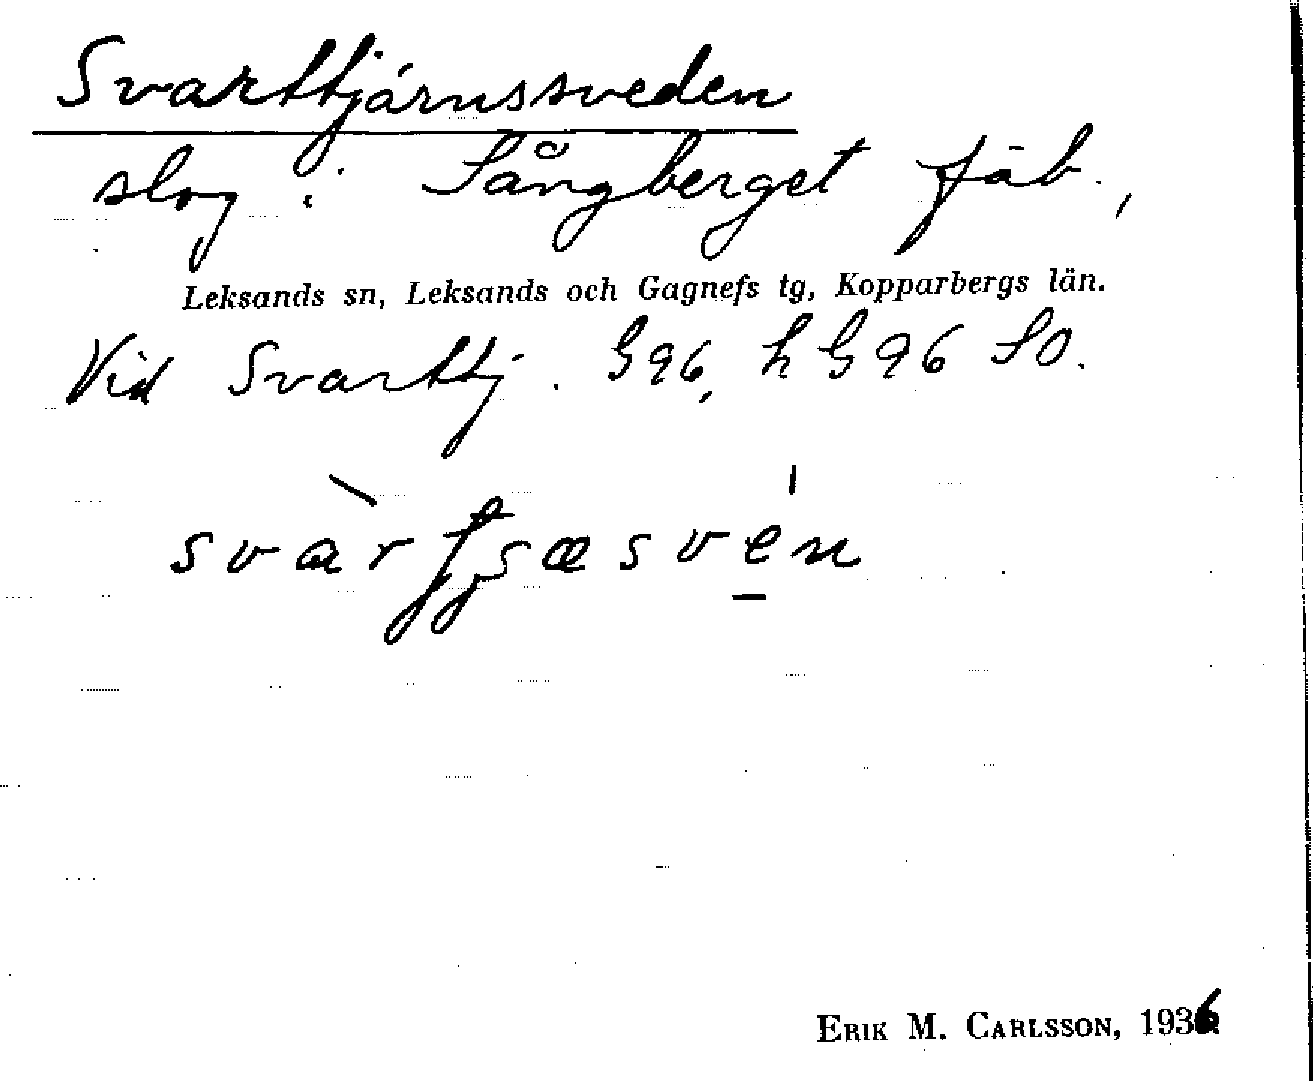 Svarttjärnssveden
slog i Sångberget fäb.,
Leksands sn, Leksands och Gagnefs tg, Kopparbergs län.
Vid Svarttj. G96, h G 96 SO.
ERIK M. CARLSSON, 1936